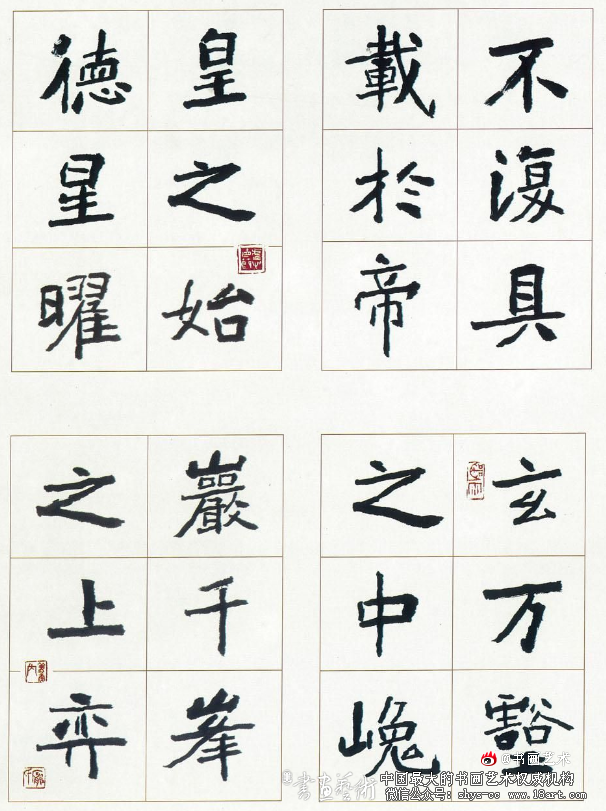 不復具
載於帝
皇之始
德星曜
玄万壑
之中巉
巖千峯
之上弈
@书画艺术
書畫藝術
中国最大的书画艺术权威机构
微信公众号：shys-cc www.18art.com